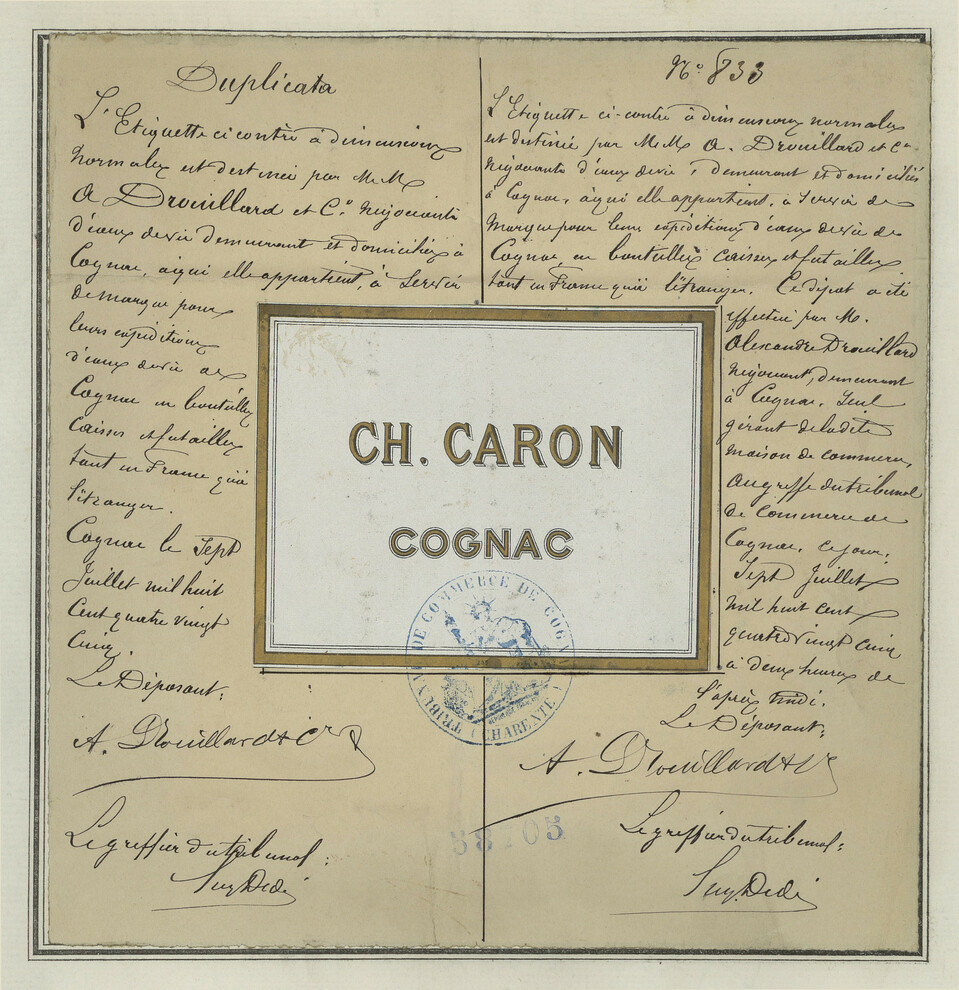 Duplicata
L'Etiquette ci contre à dimensions
normales est destinée par MM
A Drouillard et Cie Négociants
d'eaux de vie demeurant et domiciliés à
Cognac, à qui elle appartient, à Servir
de marque pour
leurs expéditions
d'eaux de vie de
Cognac en bouteilles
Caisses et futailles
tant en France qu'à
l'étranger.
Cognac le Sept
Juillet mil huit
Cent quatre vingt
Cinq.
Le Déposant:
A. Drouillard & Cie
Le greffier du tribunal:
No 833
L'Etiquette ci-contre à dimensions normales
est destinée par MM A. Drouillard et Cie
Négociants d'eaux de vie, demeurant et domiciliés
à Cognac, à qui elle appartient, à Servir de
Marque pour leurs expéditions d'eaux de vie de
Cognac, en bouteilles Caisses et futailles
tant en France qu'à l'étranger. Ce dépot a été
effectué par M.
Alexandre Drouillard
Négociant, demeurant
à Cognac, Seul
gérant de la dite
maison de commerce,
au greffe du tribunal
de Commerce de
Cognac, ce jour,
Sept Juillet
mil huit cent
quatre vingt Cinq
à deux heures de
l'après midi.
Le Déposant:
A. Drouillard & Cie
Le greffier du tribunal:
CH. CARON
COGNAC
TRIBUNAL DE COMMERCE DE COGNAC
(CHARENTE)